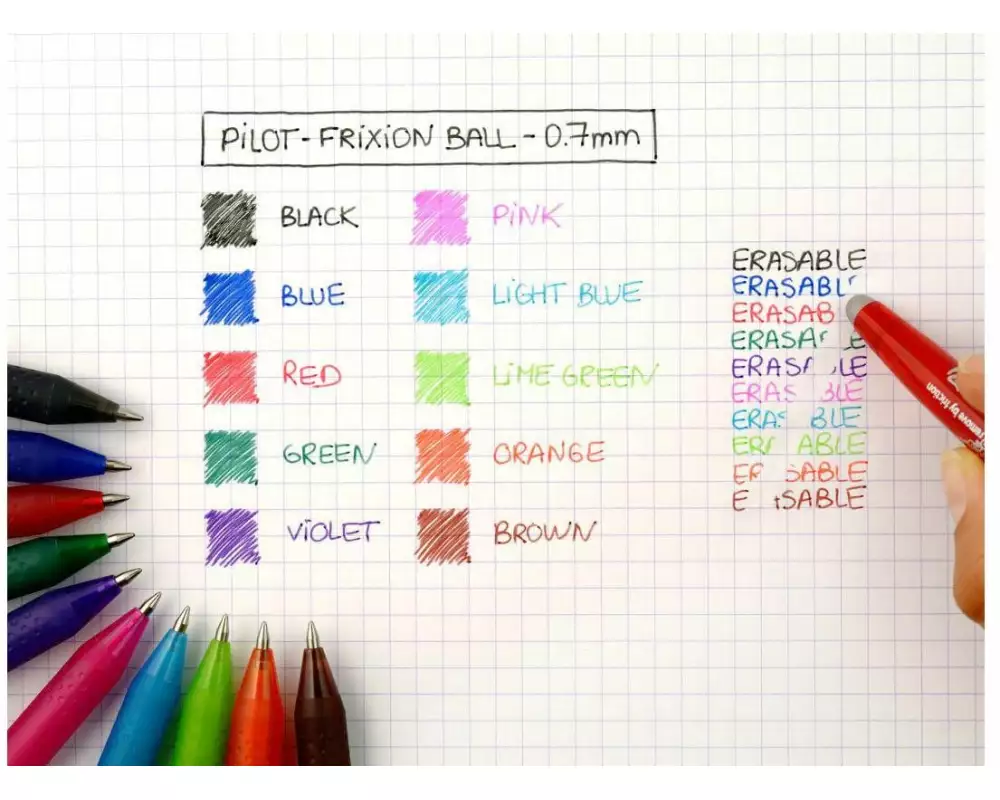 PiLOT-FRiXiON BALL-0.7mm
BLACK
PiNK
BLUE
LiGHT BLUE
RED
LiME GREEN
GREEN
ORANGE
ViOLET
BROWN
ERASABLE
ERASABL
ERASAB
ERASA E
ERAS LE
ERAS BLE
ERAS BLE
ER ABLE
E SABLE
E SABLE
remove by friction